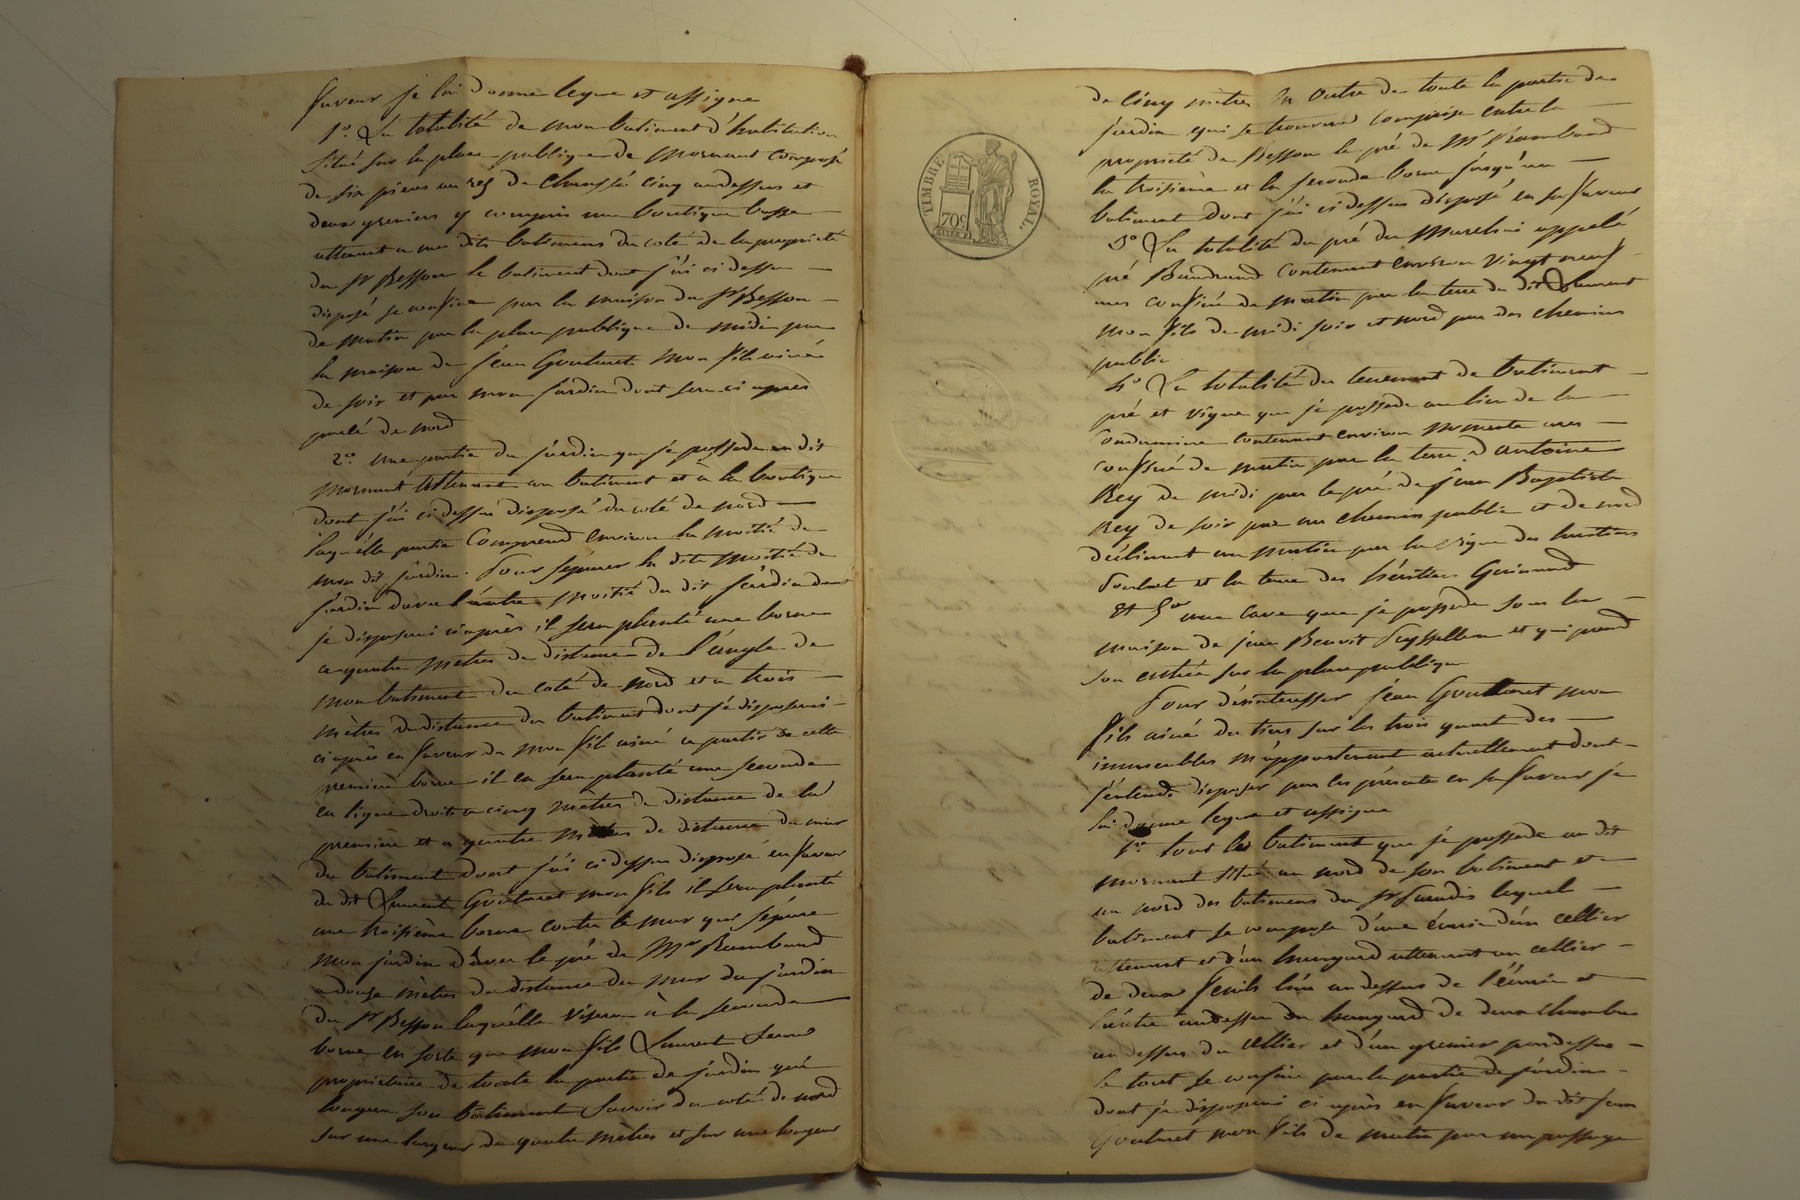 faveur je lui donne legue et assigne
1º. La totalité de mon batiment d'habitation
situé sur la place publique de Mornant composé
de six pieces au rez de chaussée cinq au dessus et
deux greniers y compris une boutique basse
attenant a mes dits batimens du coté de la propriété
du Sr Besson le batiment dont j'ai ci dessus
disposé se confine par la maison du Sr Besson
de matin par la place publique de midi par
la maison de jean Goutaret mon fils ainé
de soir et par mon jardin dont sera ci après
parlé de nord
2º. une partie du jardin que je possede au dit
Mornant attenant au batiment et à la boutique
dont j'ai ci dessus disposé du coté de nord
laquelle partie comprend environ la moitié de
mon dit jardin. Pour séparer la dite moitié de
jardin d'avec l'autre moitié du dit jardin dont
je disposerai ciaprès il sera planté une borne
a quatre mètres de distance de l'angle de
mon batiment du coté de nord et a trois
mètres de distance du batiment dont je disposerai
ci après en faveur de mon fils ainé a partir de cette
premiere borne il en sera planté une seconde
en ligne droite a cinq mètres de distance de la
premiere et a quatre mètres de distance du mur
du batiment dont j'ai ci dessus disposé en faveur
du dit Laurent Goutaret mon fils il sera planté
une troisième borne contre le mur qui sépare
mon jardin d'avec le pré de Mr Rambaud
a douze mètres de distance du mur du jardin
du Sr Besson laquelle visera à la seconde
borne en sorte que mon fils Laurent sera
propriétaire de toute la partie de jardin qui
longera son bâtiment savoir du coté de nord
sur une largeur de quatre mètres et sur une longeur
TIMBRE ROYAL
70c
de cinq mètres en outre de toute la partie de
jardin qui se trouvera comprise entre la
propriété de Besson le pré de Mr Rambaud
la troisième et la seconde borne jusqu'au
batiment dont j'ai ci dessus disposé en sa faveur
3º La totalité du pré du appelé
pré contenant environ vingt neuf
ares confiné de matin par la terre du dit Laurent
mon fils de midi soir et nord par des chemins
public.
4º La totalité du tenement de batiment
pré et vigne que je possede au lieu de la
Condamine contenant environ ares
confiné de matin par la terre d'antoine
Rey de midi par le pré de jean Baptiste
Rey de soir par un chemin public et de nord
déclinant au matin par la vigne des heritiers
et la terre des héritiers
Et 5º une cave que je possede sous la
maison de jean Benoit et qui prend
son entrée sur la place publique
Pour désintéresser jean Goutaret mon
fils ainé du tiers sur les trois quart des
immeubles m'appartenant actuellement dont
j'entends disposer par les présentes en sa faveur je
lui donne legue et assigne
1º tout le batiment que je possede au dit
mornant situé au nord de son batiment et
au nord des batimens du Sr lequel
batiment se compose d'une écurie d'un cellier
attenant et d'un hangard attenant au cellier
de deux fenils l'un au dessus de l'écurie et
l'autre au dessus du hangard de deux chambres
au dessus du cellier et d'un grenier par dessus
le tout se confine par la partie de jardin
dont je disposerai ci après en faveur du dit jean
Goutaret mon fils de matin par un passage